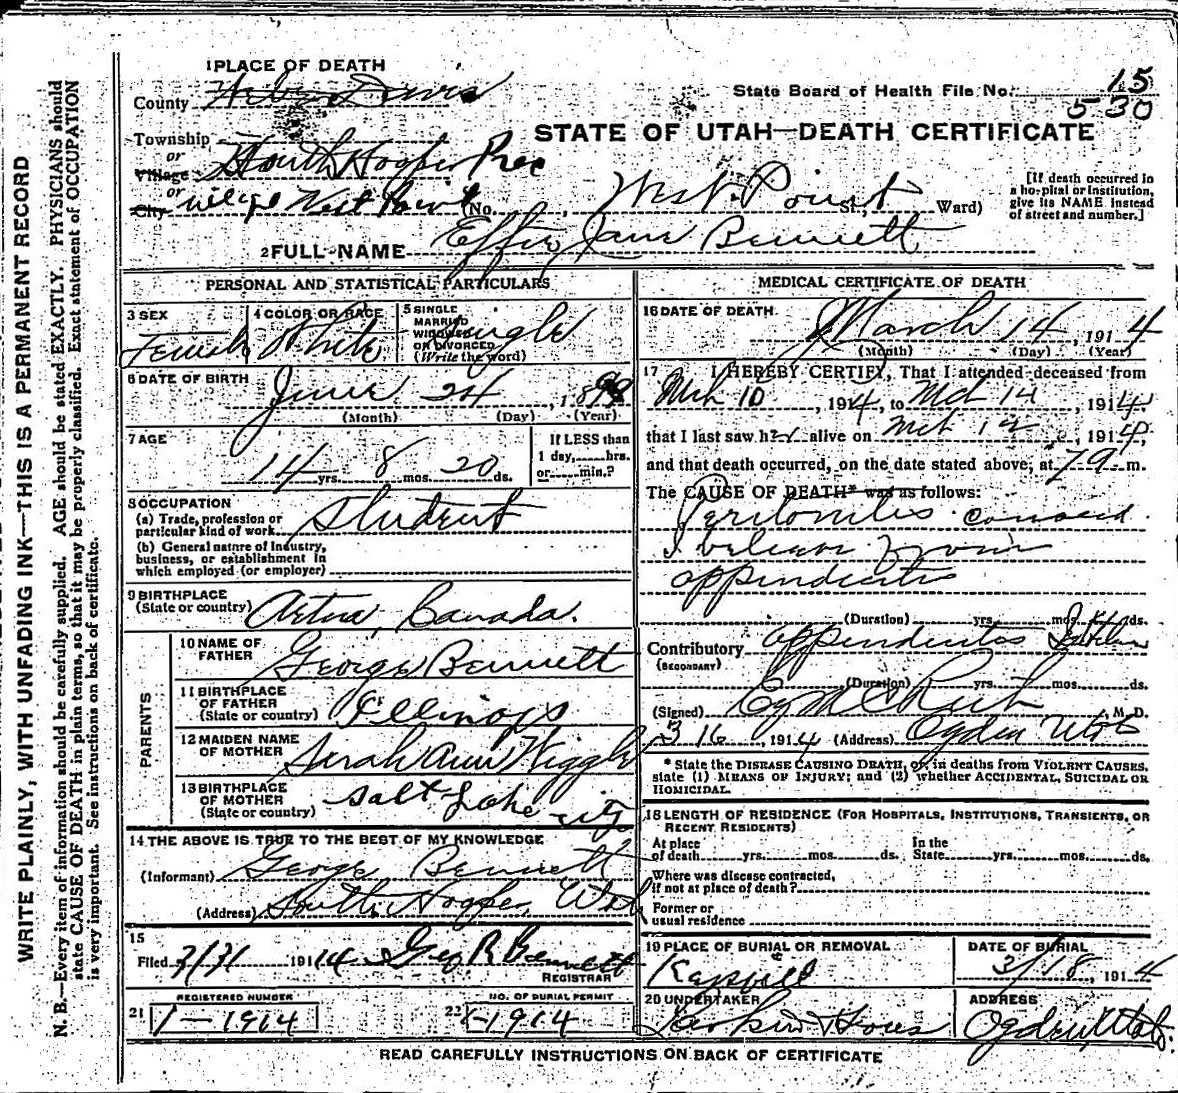 WRITE PLAINLY, WITH UNFADING INK—THIS IS A PERMANENT RECORD
N. B.—Every item of information should be carefully supplied. AGE should be stated EXACTLY. PHYSICIANS should
state CAUSE OF DEATH in plain terms, so that it may be properly classified. Exact statement of OCCUPATION
is very important. See instructions on back of certificate.
1 PLACE OF DEATH
County Weber Davis
State Board of Health File No. 15
530
Township
or
Village South Hooper Prec
or
City village West Point
STATE OF UTAH—DEATH CERTIFICATE
(No. , West Point St., Ward)
[If death occurred in
a hospital or institution,
give its NAME instead
of street and number.]
2 FULL NAME Effie Jane Bennett
PERSONAL AND STATISTICAL PARTICULARS
3 SEX Female
4 COLOR OR RACE White
5 SINGLE
MARRIED
WIDOWED
OR DIVORCED
(Write the word) Single
6 DATE OF BIRTH June 24, 1899
(Month) (Day) (Year)
7 AGE 14 yrs. 8 mos. 20 ds.
If LESS than
1 day,.....hrs.
or......min.?
8 OCCUPATION
(a) Trade, profession or
particular kind of work student
(b) General nature of industry,
business, or establishment in
which employed (or employer)
9 BIRTHPLACE
(State or country) Aetna, Canada.
PARENTS
10 NAME OF
FATHER George Bennett
11 BIRTHPLACE
OF FATHER
(State or country) Illinois
12 MAIDEN NAME
OF MOTHER Sarah Ann Wiggle
13 BIRTHPLACE
OF MOTHER
(State or country) Salt Lake city
14 THE ABOVE IS TRUE TO THE BEST OF MY KNOWLEDGE
(Informant) George Bennett
(Address) South Hooper, Utah
15
Filed 3/31 1914 Geo R Bennett
REGISTRAR
REGISTERED NUMBER
21 1-1914
NO. OF BURIAL PERMIT
22 1-1914
MEDICAL CERTIFICATE OF DEATH
16 DATE OF DEATH March 14, 1914
(Month) (Day) (Year)
17 I HEREBY CERTIFY, That I attended deceased from
Mch 10, 1914, to Mch 14, 1914,
that I last saw her alive on Mch 12, 1914,
and that death occurred, on the date stated above, at 7 9 m.
The CAUSE OF DEATH* was as follows:
Peritonitis caused
from
appendicitis
(Duration) yrs. mos. ds.
Contributory appendicitis
(SECONDARY)
(Duration) yrs. mos. ds.
(Signed) M. D.
3 16, 1914 (Address) Ogden Utah
* State the DISEASE CAUSING DEATH, or, in deaths from VIOLENT CAUSES,
state (1) MEANS OF INJURY; and (2) whether ACCIDENTAL, SUICIDAL OR
HOMICIDAL.
18 LENGTH OF RESIDENCE (FOR HOSPITALS, INSTITUTIONS, TRANSIENTS, OR
RECENT RESIDENTS)
At place
of death yrs. mos. ds.
In the
State yrs. mos. ds.
Where was disease contracted,
if not at place of death?
Former or
usual residence
19 PLACE OF BURIAL OR REMOVAL
Kaysville
DATE OF BURIAL
3/18, 1914
20 UNDERTAKER
Larkin & Sons
ADDRESS
Ogden, Utah.
READ CAREFULLY INSTRUCTIONS ON BACK OF CERTIFICATE